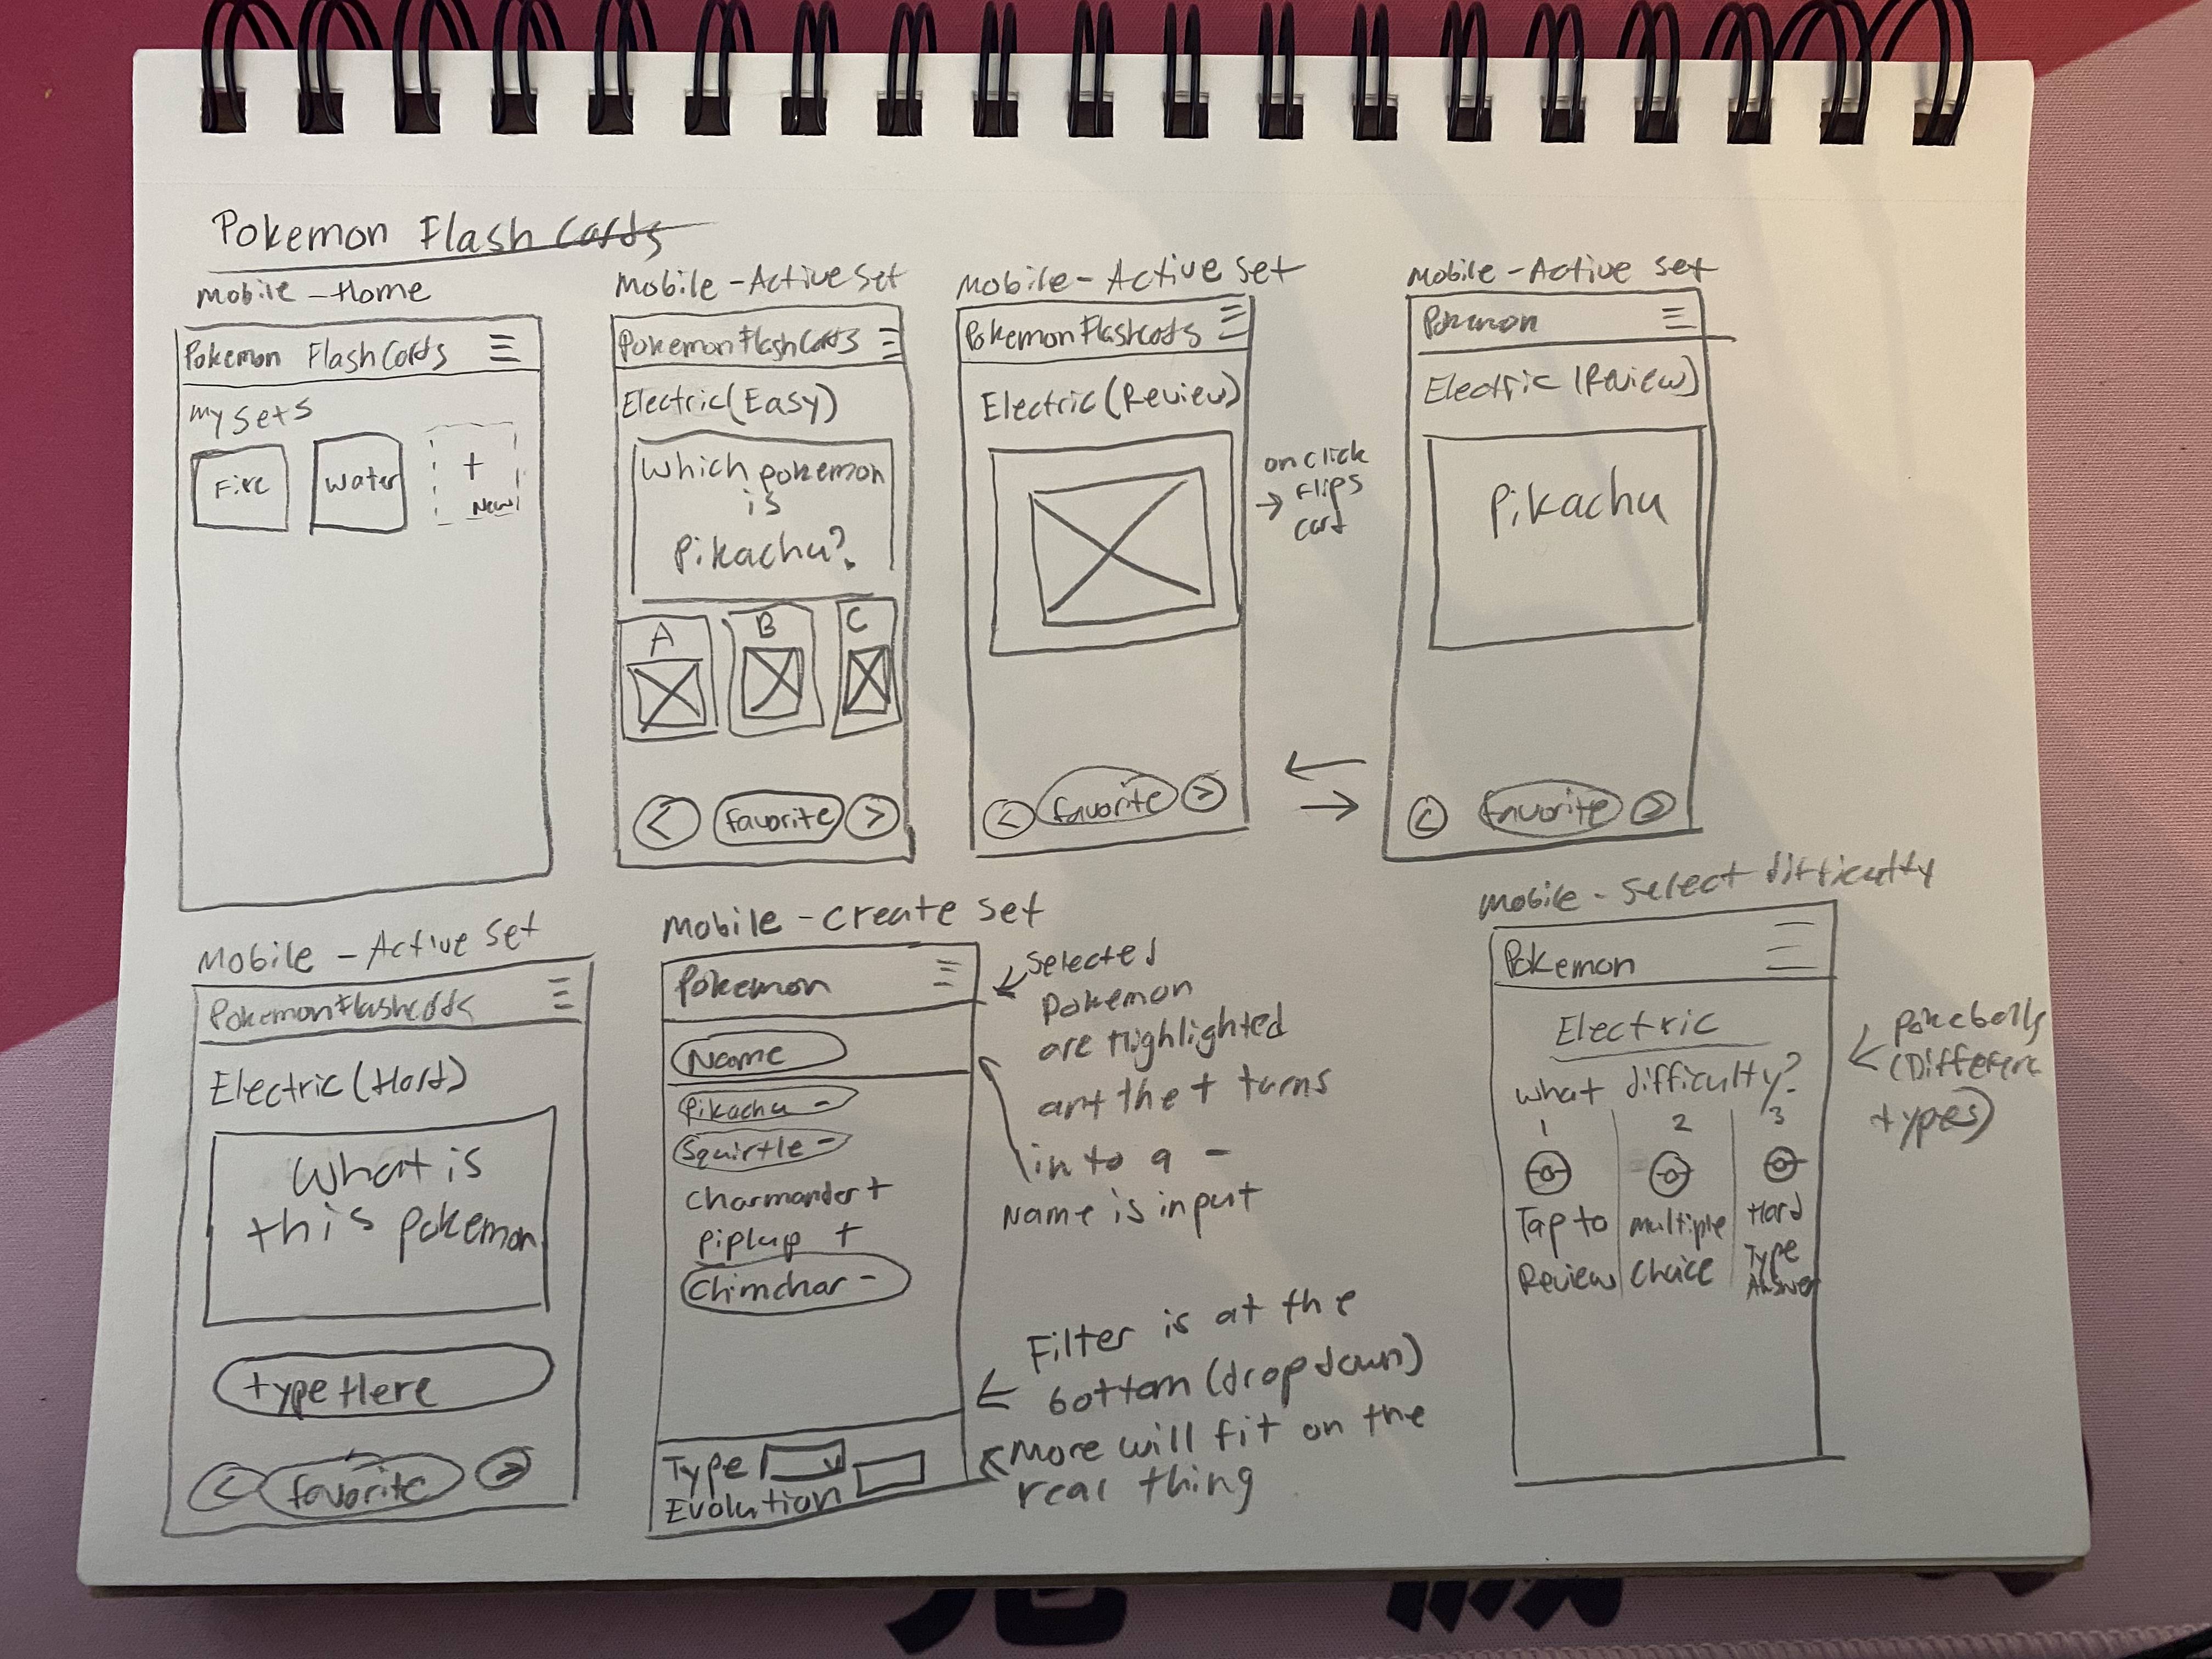 Pokemon Flash Cards
Mobile - Home
Pokemon FlashCards
My sets
Fire
Water
+
New
Mobile - Active Set
PokemonFlashCards
Electric (Easy)
Which pokemon
is
Pikachu?
A
B
C
<
favorite
>
Mobile - Active Set
PokemonFlashcards
Electric (Review)
<
favorite
>
on click
→ flips
card
←
→
Mobile - Active Set
Pokemon
Electric (Review)
Pikachu
<
favorite
>
Mobile - Active Set
PokemonFlashcards
Electric (Hard)
What is
this pokemon
type Here
<
favorite
>
Mobile - Create Set
Pokemon
Name
Pikachu -
Squirtle -
Charmander +
Piplup +
Chimchar -
Type
Evolution
Selected
Pokemon
are Highlighted
and the + turns
into a -
Name is input
Filter is at the
bottom (dropdown)
More will fit on the
real thing
Mobile - Select difficulty
Pokemon
Electric
What difficulty?
1 2 3
Tap to
Review
Multiple
Choice
Hard
Type
Answer
Pokeballs
(Different
types)